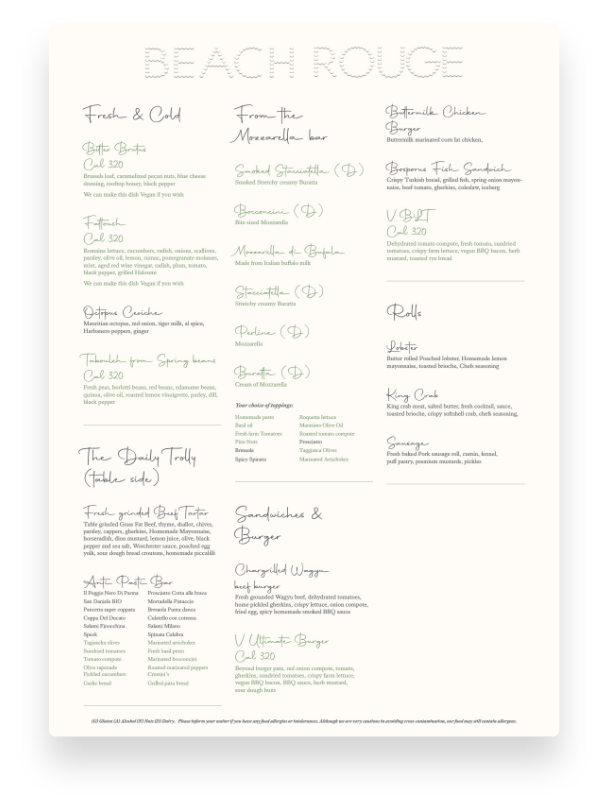 BEACH ROUGE
Fresh & Cold
Bitter Brutus
Cal 320
Brussels leaf, caramelized pecan nuts, blue cheese
dressing, rooftop honey, black pepper
We can make this dish Vegan if you wish
Fattoush
Cal 320
Romaine lettuce, cucumbers, radish, onions, scallions,
parsley, olive oil, lemon, sumac, pomegranate molasses,
mint, aged red wine vinegar, radish, plum, tomato,
black pepper, grilled Haloumi
We can make this dish Vegan if you wish
Octopus Ceviche
Mauritian octopus, red onion, tiger milk, al spice,
Harbanero peppers, ginger
Tabouleh from Spring beans
Cal 320
Fresh peas, borlotti beans, red beans, edamame beans,
quinoa, olive oil, roasted lemon vinaigrette, parley, dill,
black pepper
The Daily Trolly
(table side)
Fresh grinded Beef Tartar
Table grinded Grass Fat Beef, thyme, shallot, chives,
parsley, cappers, gherkins, Homemade Mayonnaise,
horseradish, dion mustard, lemon juice, olive, black
pepper and sea salt, Worchester sauce, poached egg
yolk, sour dough bread croutons, homemade piccalilli
Anti Pasti Bar
Il Poggio Nero Di Parma
San Daniele BIO
Pancetta super coppata
Coppa Del Ducato
Salami Finocchina
Speck
Taggiasche olives
Sundried tomatoes
Tomato compote
Olive tapenade
Pickled cucumbers
Garlic bread
Prosciutto Cotta alla brace
Mortadella Pistaccio
Bresaola Punta danca
Culatello con cotenna
Salami Milano
Spinata Calabra
Marinated artichokes
Fresh basil pesto
Marinated bocconcini
Roasted marinated peppers
Crostini's
Grilled pitta bread
From the
Mozzarella bar
Smoked Stracciatella (D)
Smoked Stretchy creamy Buratta
Bocconcini (D)
Bite sized Mozzarella
Mozzarella di Bufala
Made from Italian buffalo milk
Stracciatella (D)
Stretchy creamy Buratta
Perline (D)
Mozzarella
Buratta (D)
Cream of Mozzarella
Your choice of toppings:
Homemade pesto
Basil oil
Fresh farm Tomatoes
Pine Nuts
Bresaola
Spicy Spinata
Roquette lettuce
Muraiato Olive Oil
Roasted tomato compote
Prosciutto
Taggiasca Olives
Marinated Artichokes
Sandwiches &
Burger
Chargrilled Wagyu
beef burger
Fresh grounded Wagyu beef, dehydrated tomatoes,
home pickled gherkins, crispy lettuce, onion compote,
fried egg, spicy homemade smoked BBQ sauce
V Ultimate Burger
Cal 320
Beyond burger pats, red onion compote, tomato,
gherkins, sundried tomatoes, crispy farm lettuce,
vegan BBQ bacon, BBQ sauce, herb mustard,
sour dough buns
Buttermilk Chicken
Burger
Buttermilk marinated corn fat chicken,
Bosporus Fish Sandwich
Crispy Turkish bread, grilled fish, spring onion mayon-
naise, beef tomato, gherkins, coleslaw, iceberg
V BLT
Cal 320
Dehydrated tomato compote, fresh tomato, sundried
tomatoes, crispy lettuce, vegan BBQ bacon, herb
mustard, toasted rye bread
Rolls
Lobster
Butter rolled Poached lobster, Homemade lemon
mayonnaise, toasted brioche, Chefs seasoning
King Crab
King crab meat, salted butter, fresh cocktail, sauce,
toasted brioche, crispy softshell crab, chefs seasoning,
Sausage
Fresh baked Pork sausage roll, cumin, fennel,
puff pastry, premium mustards, pickles
(G) Gluten (A) Alcohol (N) Nuts (D) Dairy. Please inform your waiter if you have any food allergies or intolerances. Although we are very cautious in avoiding cross contamination, our food may still contain allergens.